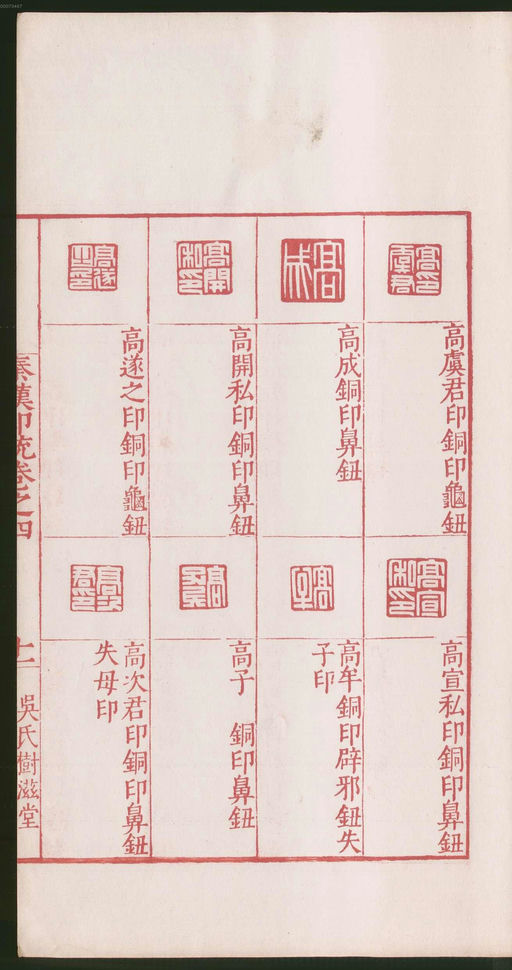 00073467
高虞君印銅印龜鈕
高成銅印鼻鈕
高開私印銅印鼻鈕
高遂之印銅印龜鈕
高宣私印銅印鼻鈕
高牟銅印辟邪鈕失
子印
高子 銅印鼻鈕
高次君印銅印鼻鈕
失母印
秦漢印統卷之四
十一
吳氏樹滋堂